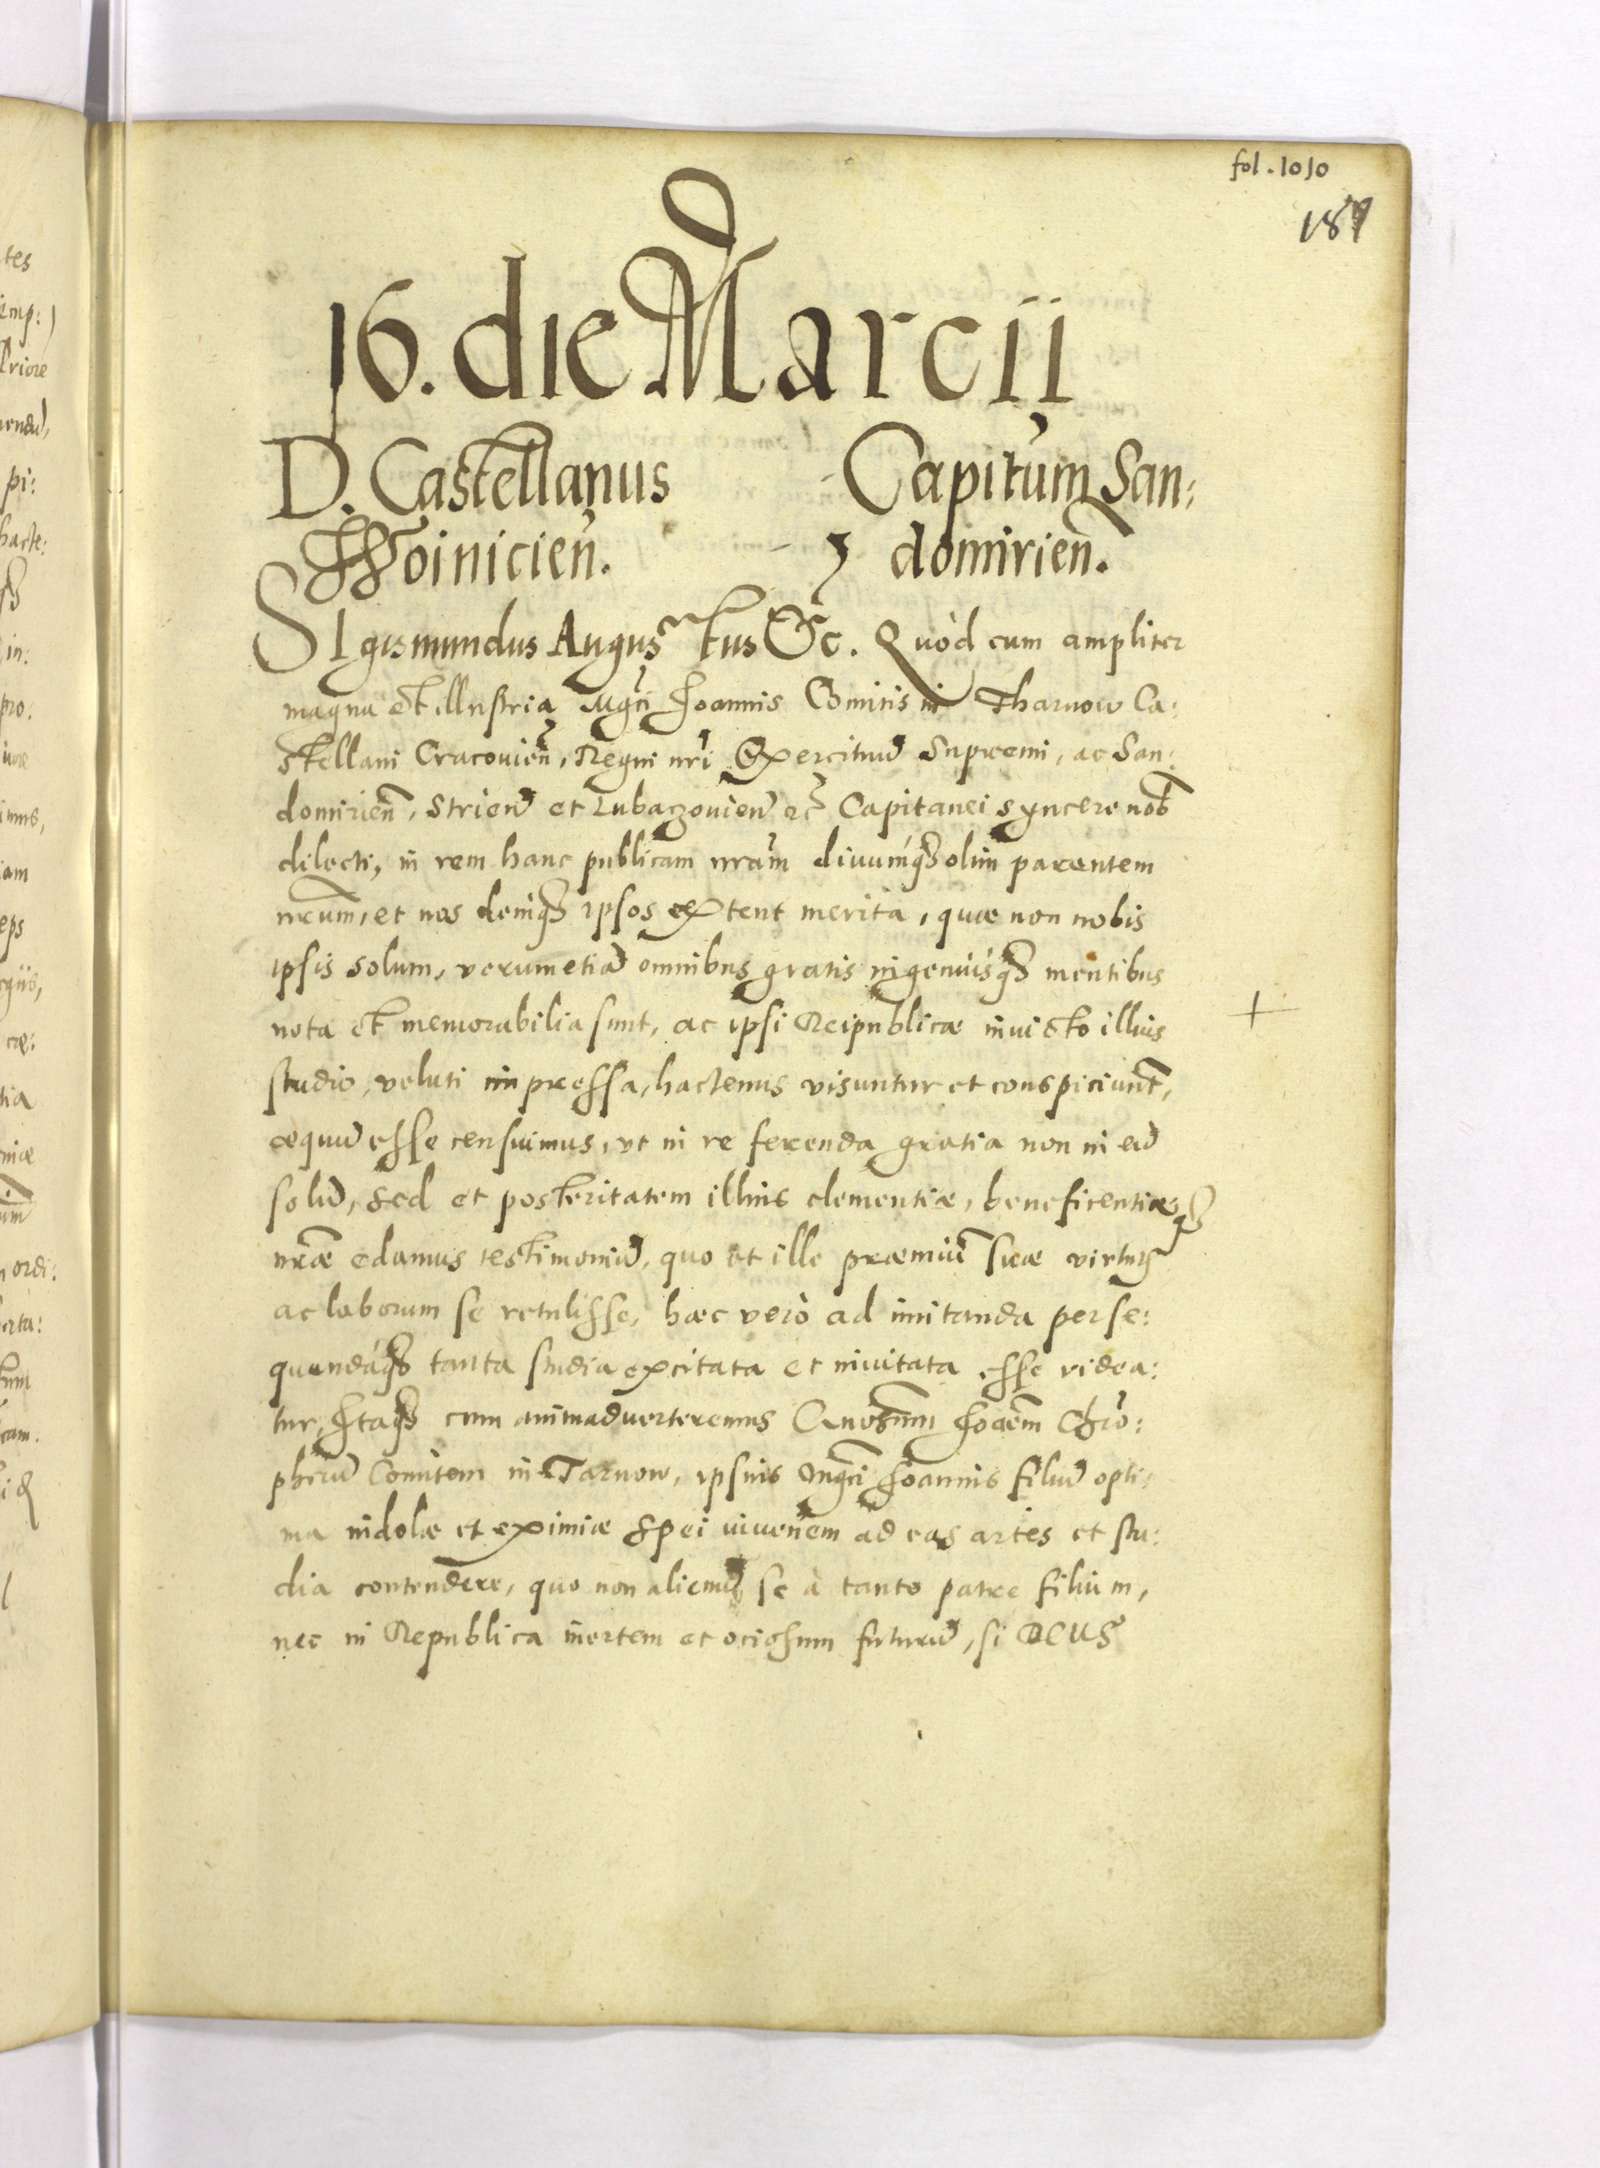 fol. 1010
189
16. die Marcii
D. Castellanus Capitum San:
Woinicien. domirien.
SIgismundus Augustus &c. Quòd cum ampliter
magna et illustria Mgci Joannis Comitis in Tharnow Ca:
stellani Cracovien, Regni nri Exercituu Supremi, ac San:
domirien, Strien et Lubaczovien etc Capitanei syncere nob
dilecti, in rem hanc publicam nram divumq olim parentem
nrum, et nos deniq ipsos extent merita, quæ non nobis
ipsis solum, verumetia omnibus gratis ingenuisq mentibus
nota et memorabilia sunt, ac ipsi Reipublicæ invicto illius
studio, veluti impressa, hactenus visuntur et conspiciunt,
æquu esse censuimus, ut in re ferenda gratia non in eu
solu, sed et posteritatem illius clementiæ, beneficentiæq
nræ edamus testimoniu, quo et ille præmiu suæ virtutis
ac laborum se retulisse, hæc verò ad imitanda perse:
quendaq tanta studia excitata et invitata esse videa:
tur, Itaq cum animadverteremus Gnosum Joanem Chro:
pheru Comitem in Tarnow, ipsius Mgci Joannis filiu opti:
ma indole et eximiæ spei iuvenem ad eas artes et stu:
dia contendere, quo non alienu se à tanto patre filium,
nec in Republica inertem et ociosum futuru, si DEUS